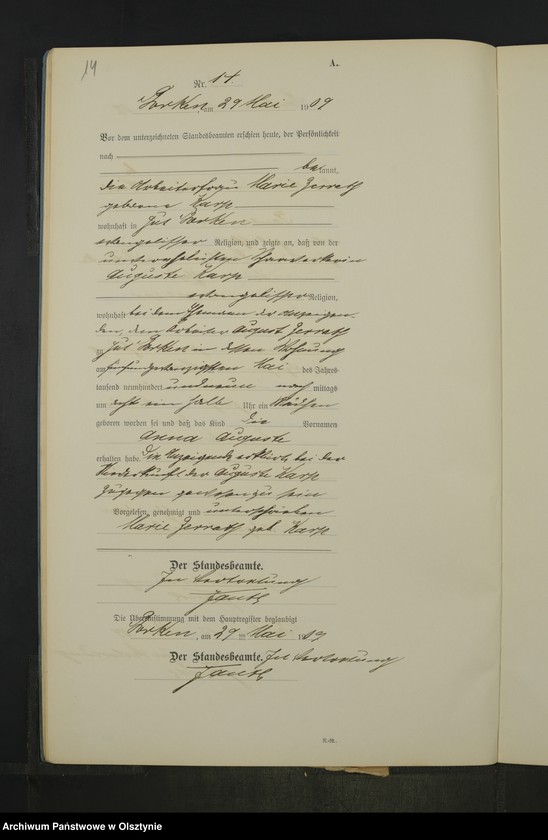 14
A.
Nr. 14
Borken, am 29 Mai 1909
Vor dem unterzeichneten Standesbeamten erschien heute, der Persönlichkeit
nach
bekannt,
die Arbeiterfrau Marie Jerrath
geborene Karp
wohnhaft in Gut Borken
evangelischer Religion, und zeigte an, daß von der
unverehelichten
Auguste Karp
evangelischer Religion,
wohnhaft bei dem Ehemann der Anzeigen-
den, dem Arbeiter August Jerrath
zu Gut Borken in dessen Wohnung
am fünfundzwanzigsten Mai des Jahres
tausend neunhundert und neun nach mittags
um acht ein halb Uhr ein Mädchen
geboren worden sei und daß das Kind die Vornamen
Anna Auguste
erhalten habe. Die Anzeigende erklärte bei der
Niederkunft der Auguste Karp
zugegen gewesen zu sein
Vorgelesen, genehmigt und unterschrieben
Marie Jerrath geb. Karp
Der Standesbeamte.
In Vertretung
Die Übereinstimmung mit dem Hauptregister beglaubigt
Borken, am 29 ten Mai 1909
Der Standesbeamte. In Vertretung
Archiwum Państwowe w Olsztynie